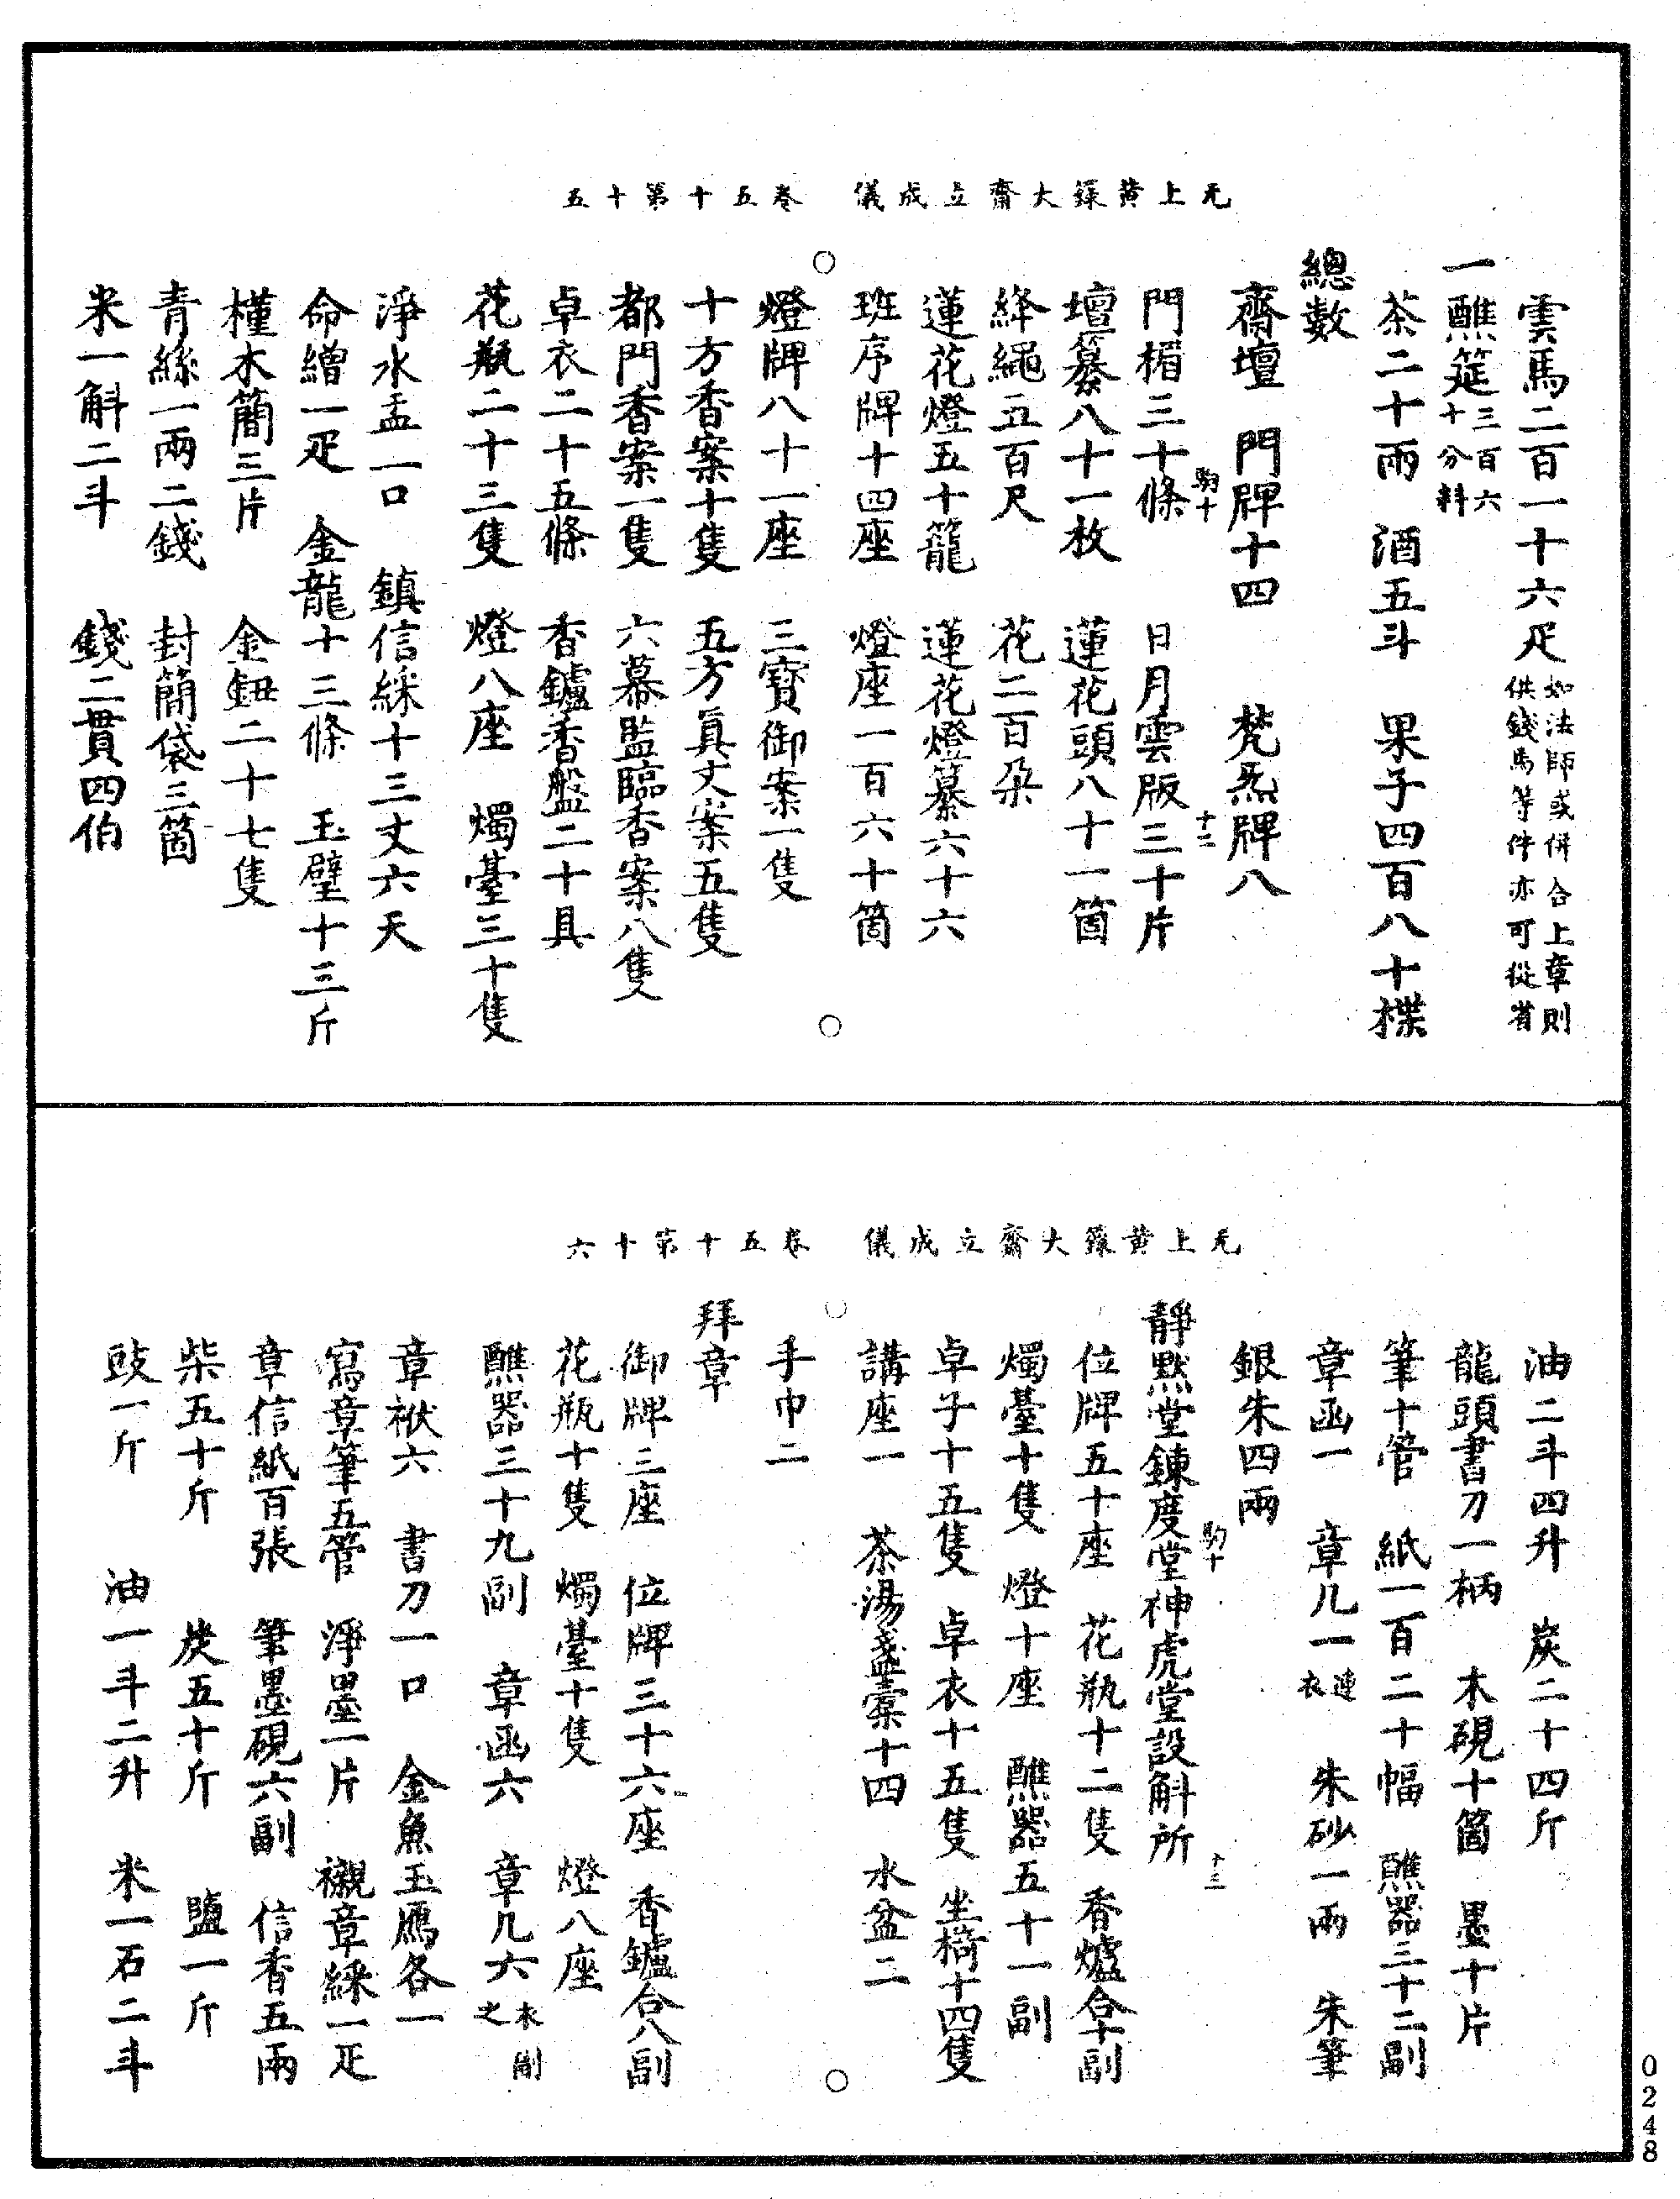 无上黃籙大齋立成儀　卷五十第十五
雲馬二百一十六疋如法師或併合上章則供錢馬等件亦可從省
一醮筵三百六十分料
茶二十兩　酒五斗　果子四百八十楪
總數
齋壇　門牌十四　梵炁牌八
門楣三十條　日月雲版三十片
壇纂八十一枚　蓮花頭八十一箇
絳繩五百尺　花二百朶
蓮花燈五十籠　蓮花燈纂六十六
班序牌十四座　燈座一百六十箇
燈牌八十一座　三寶御案一隻
十方香案十隻　五方眞文案五隻
都門香案一隻　六幕監臨香案八隻
卓衣二十五條　香鑪香盤二十具
花瓶二十三隻　燈八座　燭臺三十隻
淨水盂一口　鎮信綵十三丈六天
命繒一疋　金龍十三條　玉璧十三斤
槿木簡三片　金鈕二十七隻
青絲一兩二錢　封簡袋三箇
米一斛二斗　錢二貫四伯
駒十
十二
无上黃籙大齋立成儀　卷五十第十六
油二斗四升　炭二十四斤
龍頭書刀一柄　木硯十箇　墨十片
筆十管　紙一百二十幅　醮器三十二副
章函一　章几一連衣　朱砂一兩　朱筆
銀朱四兩
靜默堂鍊度堂神虎堂設斛所
位牌五十座　花瓶十二隻　香爐合十副
燭臺十隻　燈十座　醮器五十一副
卓子十五隻　卓衣十五隻　坐椅十四隻
講座一　茶湯盞橐十四　水盆二
手巾二
拜章
御牌三座　位牌三十六座　香鑪合八副
花瓶十隻　燭臺十隻　燈八座
醮器三十九副　章函六　章几六衣副之
章袱六　書刀一口　金魚玉鴈各一
寫章筆五管　淨墨一片　襯章綵一疋
章信紙百張　筆墨硯六副　信香五兩
柴五十斤　炭五十斤　鹽一斤
豉一斤　油一斗二升　米一石二斗
駒十
十三
0248